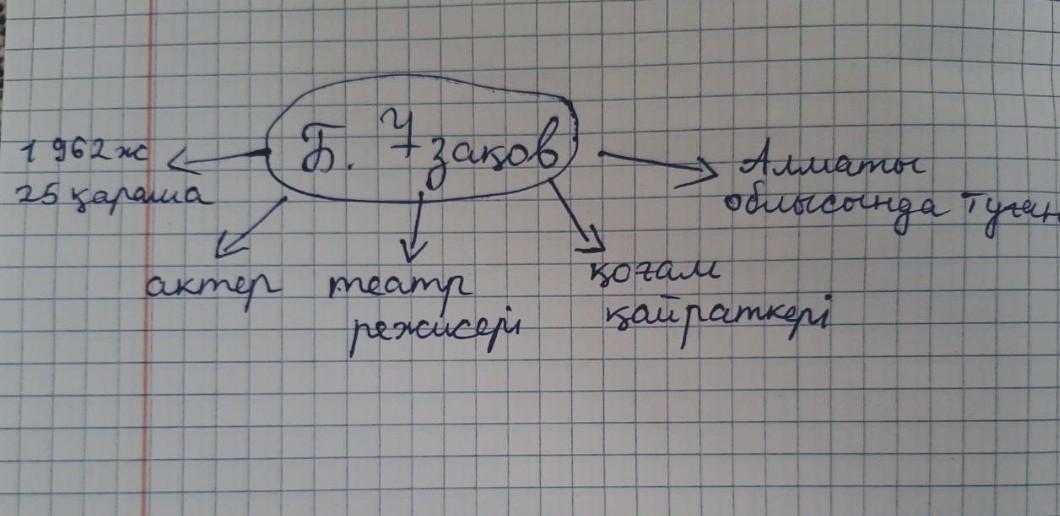 Б. Ұзақов
1962ж
25 қараша
Алматы
облысында туған
актер
театр
режисері
қоғам
қайраткері